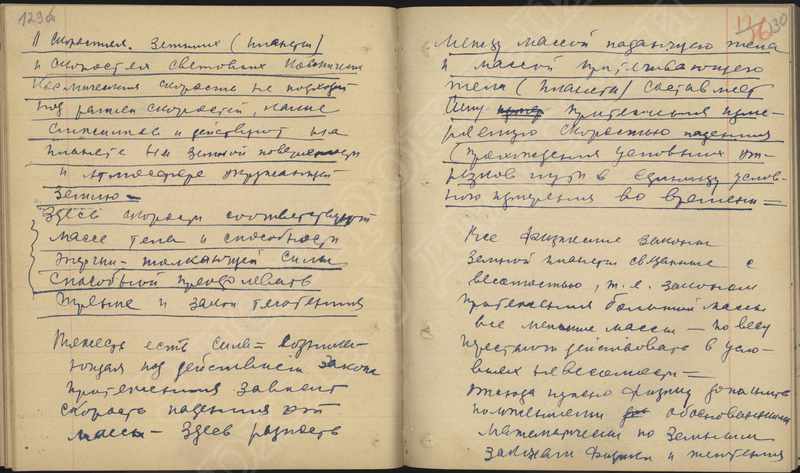 129а
и скоростях. Земных (планеты)
и скоростях световых
Космическая скорость не подходит
под разряд скоростей, какие
и действуют на
планете на земной поверхности
и атмосфере окружающей
Землю —
Здесь скорости соответствуют
массе тела и способности
Энергии — толкающей силы
способной преодолевать
трение и закон тяготения
Тяжесть есть сила = возника-
ющая под действием закона
притяжения зависит
скорость падения от
массы — Здесь разность
130
между массой падающего тела
и массой притягивающего
тела (планеты) составляет
силу притяжения изме-
ряемую скоростью падения
(прохождения условных от-
резков пути в единицу услов-
ного измерения во времени =
Все физические законы
Земной планеты связанные с
весомостью, т.е. законом
притяжения большей массы
все меньшие массы — по всему
перестают действовать в усло-
виях невесомости =
Отсюда нужно физику дополнить
положениями обоснованными
математически по Земным
законам физики и тяготения